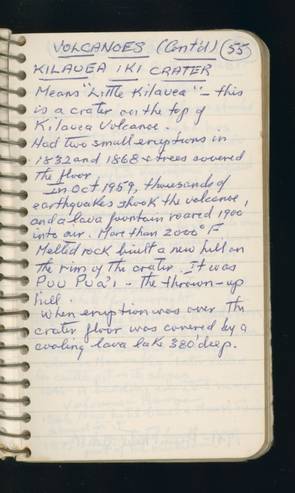 VOLCANOES (Cont'd) 55
KILAUEA IKI CRATER
Means "Little Kilauea" - this
is a crater on the top of
Kilauea Volcanoe.
Had two small eruptions in
1832 and 1868 & trees covered
the floor
In Oct 1959, thousands of
earthquakes shook the volcanoe,
and a lava fountain roared 1900
into air. More than 2000° F.
Melted rock built a new hill on
the rim of the crater. It was
PUU PUA'I - The thrown-up
hill.
When eruption was over the
crater floor was covered by a
cooling lava lake 380' deep.